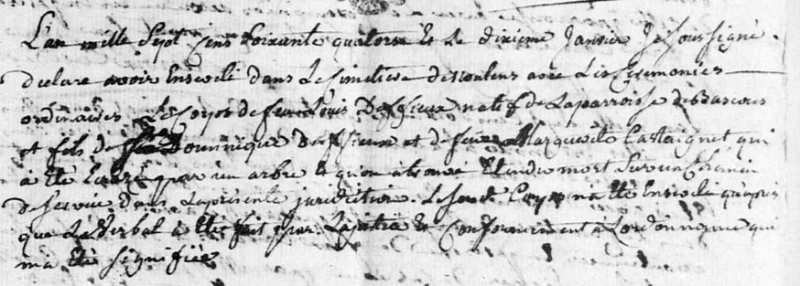 L'an mille Sept Cens Soixante quatorse et Le dixieme Janvier Je Soussigné
declare avoir Enseveli dans Le Simetiere avec Les Ceremonies
ordinaires Le Corps de feu Louis natif de Laparroisse de Bascous
et fils de Dominique et de feue Marguerite Castaignet qui
à été par un arbre et qu'on à trouvé mort Sur un Chemin
de Service dans Laprésente juridiction. Le na été Enseveli qu'après
que Leverbal a été fait par et Conformement à Lordonnance qui
ma été signifiée